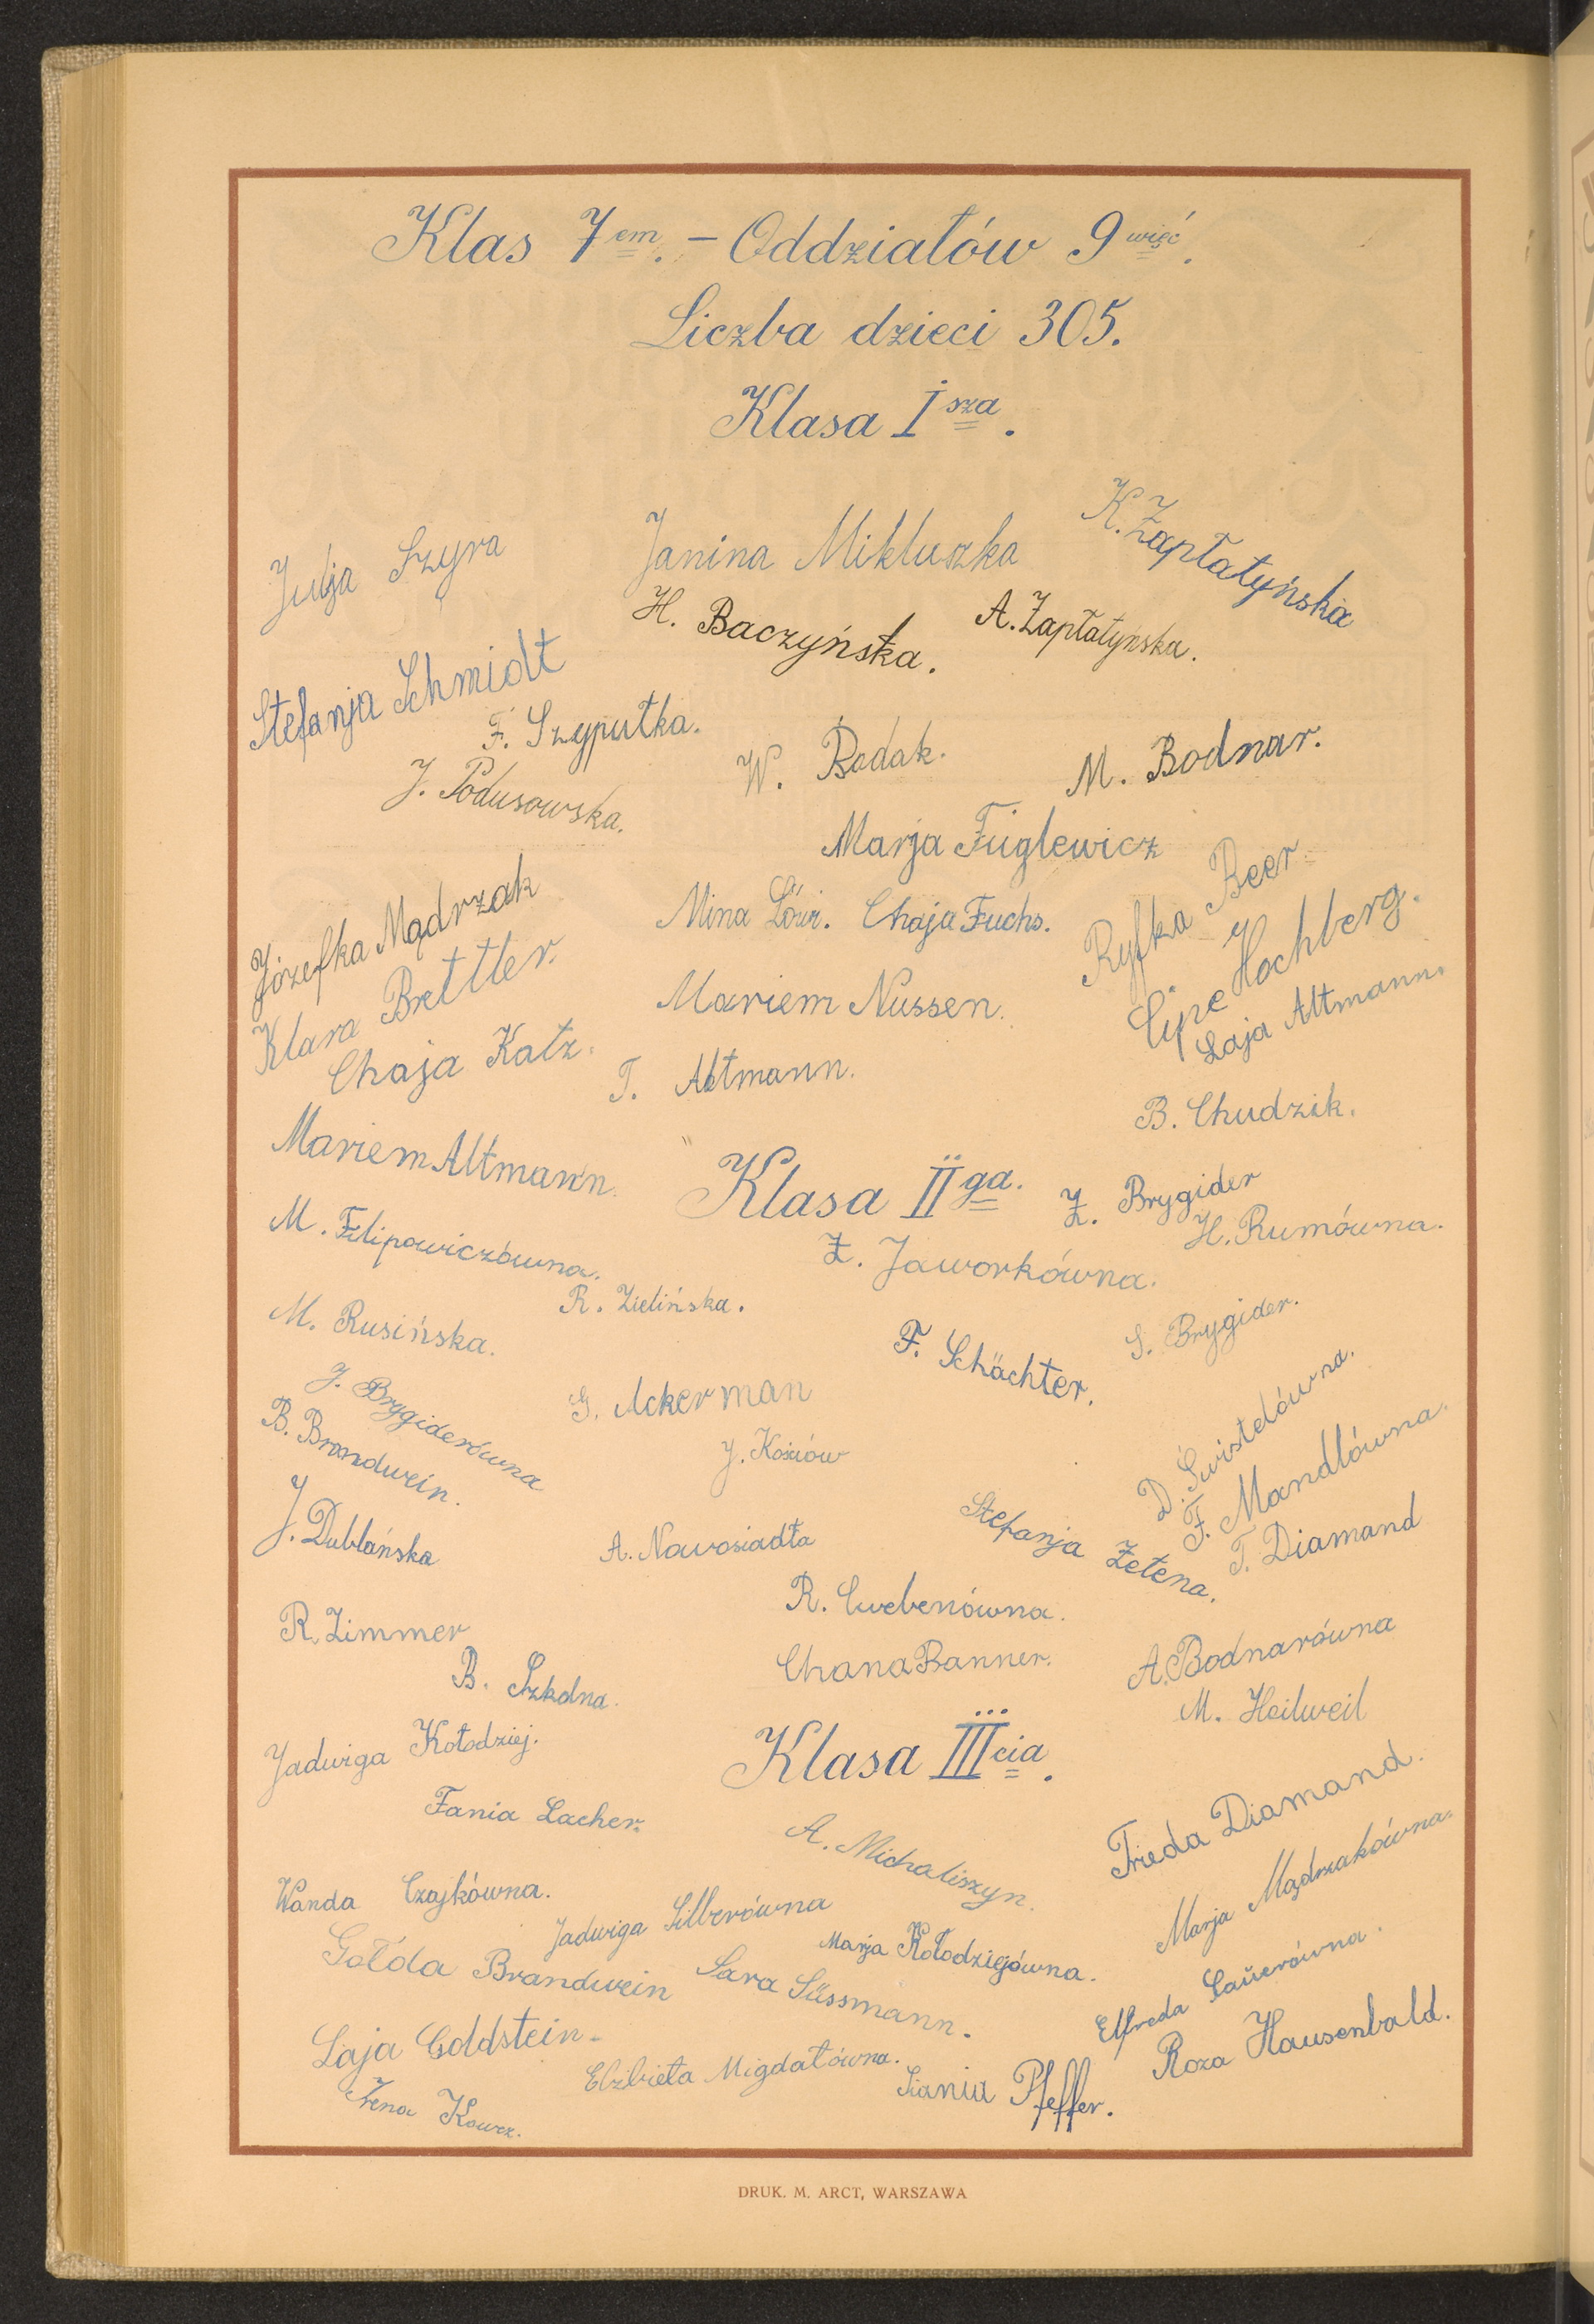 Klas 7em. – Oddziałów 9więć.
Liczba dzieci 305.
Klasa Isza.
Julja Szyra
Janina Mikluszka
K. Zapłatyńska
H. Baczyńska.
A. Zapłatyńska.
Stefanja Schmidt
F. Szyputka.
W. Bodak.
M. Bodnar.
J. Podusowska.
Marja Fuglewicz
Józefka Mądrzak
Mina Löwi. Chaja Fuchs.
Ryfka Beer.
Klara Brettler.
Mariem Nussen.
Cipe Hochberg.
Chaja Katz.
T. Altmann.
Laja Altmann.
B. Chudzik.
Mariem Altmann.
Klasa IIga.
Z. Brygider
M. Filipowiczówna.
Z. Jaworkówna.
H. Rumówna.
R. Zielińska.
M. Rusińska.
F. Schächter.
S. Brygider.
J. Brygiderówna
G. Ackerman
B. Brandwein.
J. Kościów
D. Świstelówna.
F. Mandlówna.
J. Dublańska
A. Nawosiadła
Stefanja Zetena.
T. Diamand
R. Zimmer
R. Cwebenówna.
B. Szkolna.
Chana Banner.
A. Bodnarówna
M. Heilweil
Jadwiga Kołodziej.
Klasa IIIcia.
Fania Lacher.
A. Michaliszyn.
Frieda Diamand.
Wanda Czajkówna.
Jadwiga Silberówna
Marja Kołodziejówna.
Marja Mądrzakówna.
Gołda Brandwein
Sara Süssmann.
Elfreda Lauerówna.
Laja Goldstein.
Elżbieta Migdałówna.
Sania Pfeffer.
Roza Hausenbald.
Irena Kowcz.
DRUK. M. ARCT, WARSZAWA